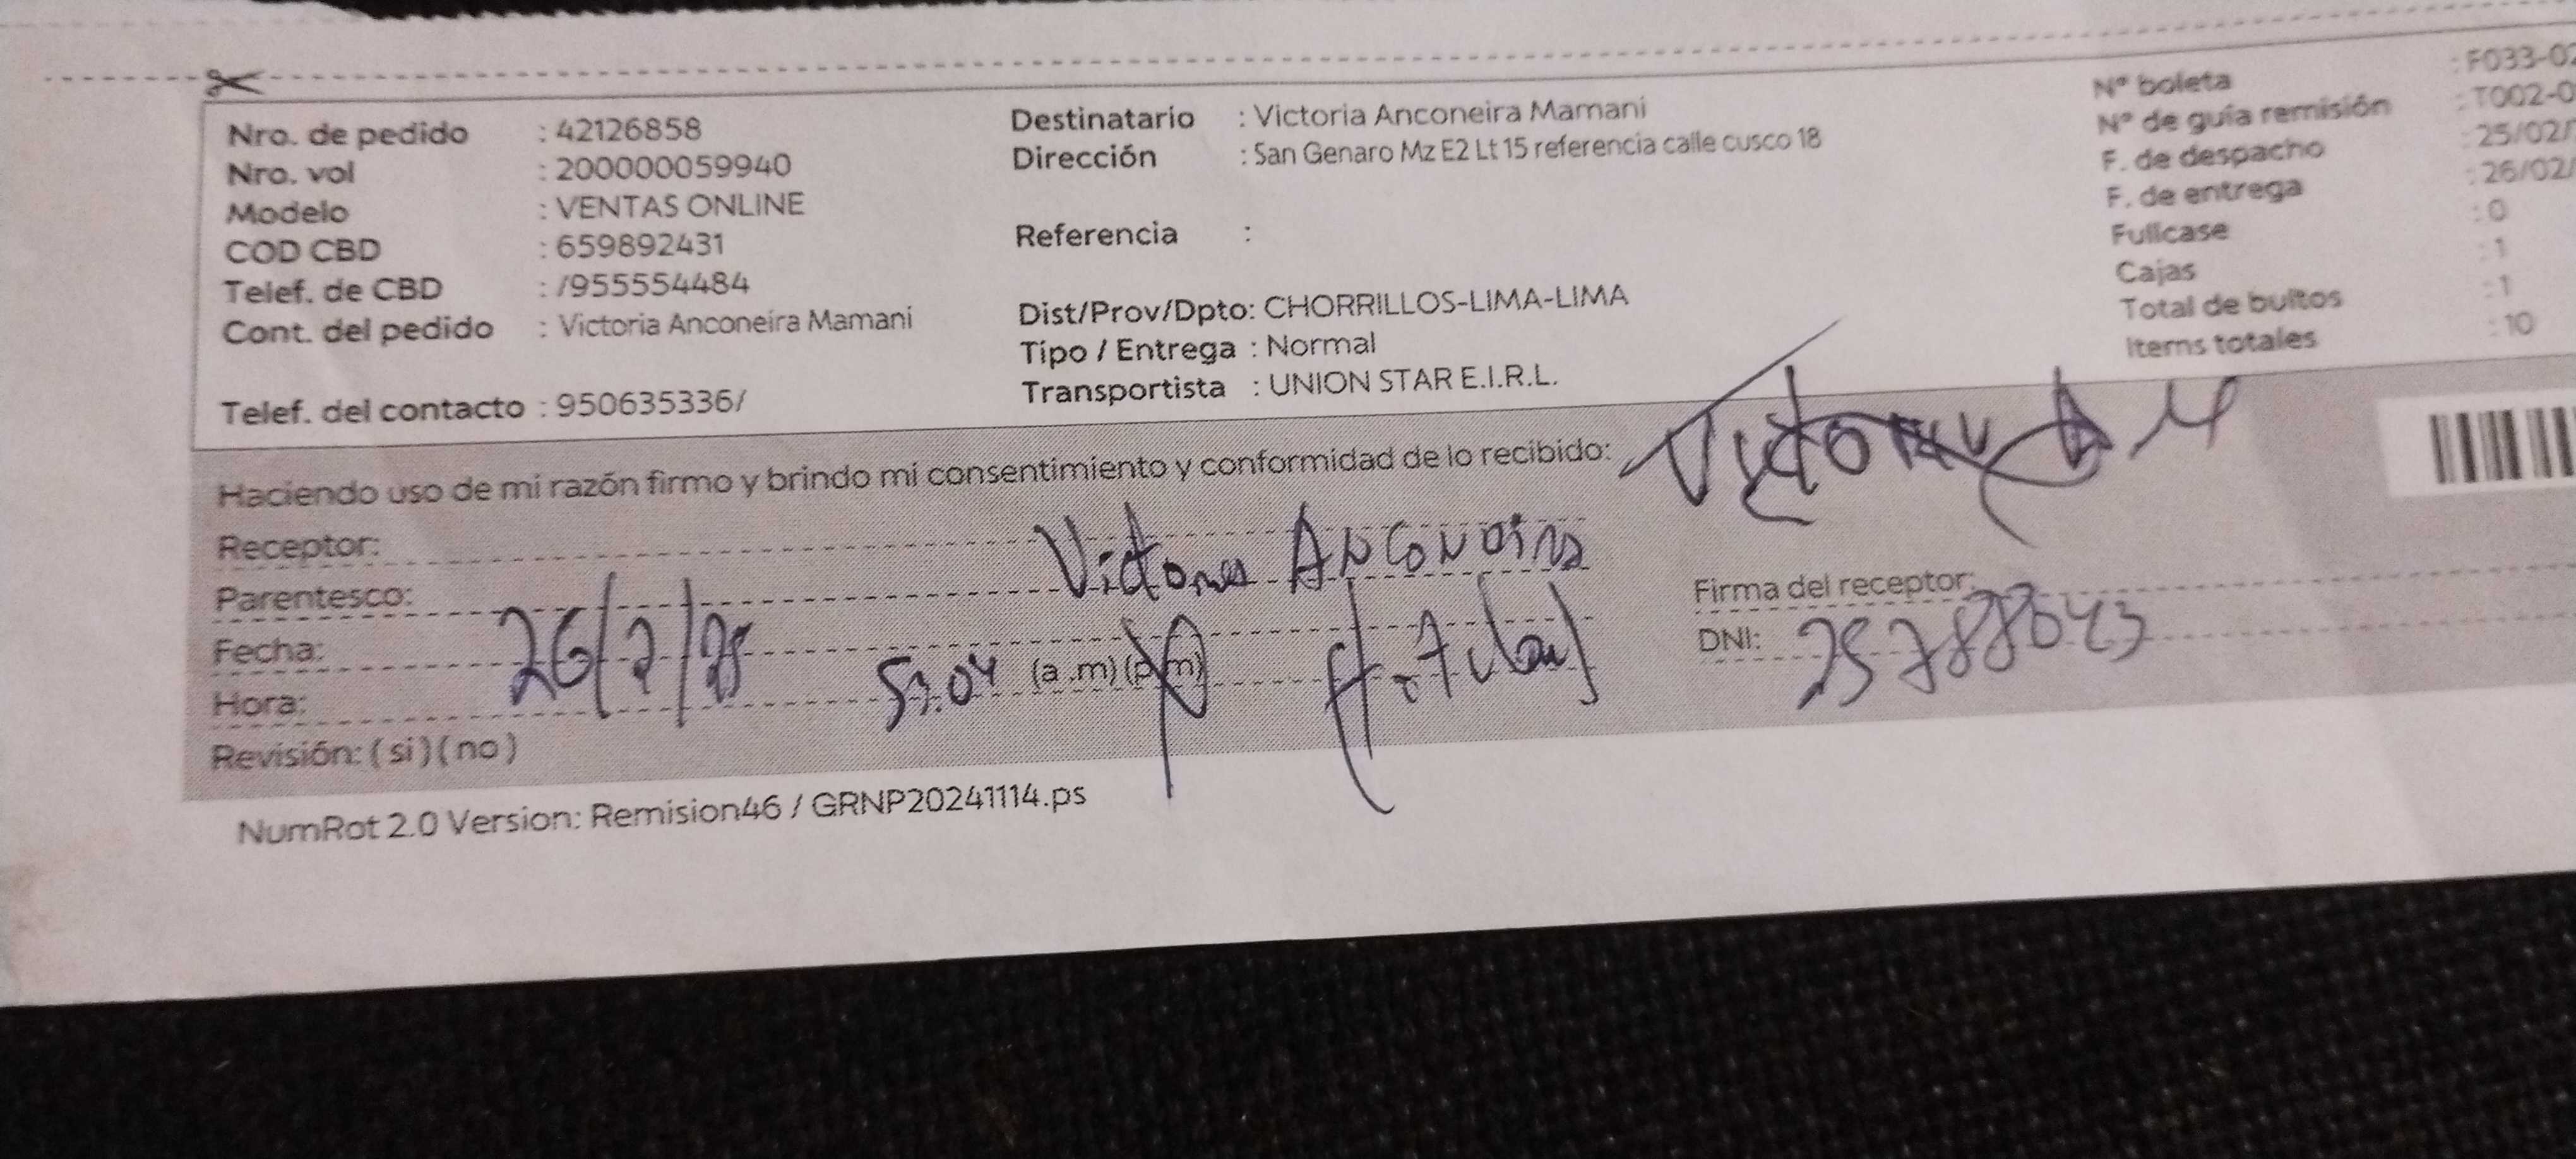 Nro. de pedido : 42126858
Nro. vol : 200000059940
Modelo : VENTAS ONLINE
COD CBD : 659892431
Telef. de CBD : /955554484
Cont. del pedido : Victoria Anconeira Mamani
Telef. del contacto : 950635336/
Destinatario : Victoria Anconeira Mamani
Dirección : San Genaro Mz E2 Lt 15 referencia calle cusco 18
Referencia :
Dist/Prov/Dpto: CHORRILLOS-LIMA-LIMA
Tipo / Entrega : Normal
Transportista : UNION STAR E.I.R.L.
N° boleta : F033-02
N° de guía remisión : T002-0
F. de despacho : 25/02/
F. de entrega : 26/02/
Fullcase : 0
Cajas : 1
Total de bultos : 1
Items totales : 10
Haciendo uso de mi razón firmo y brindo mi consentimiento y conformidad de lo recibido:
Receptor: Victoria Anconeira
Parentesco:
Fecha: 26/2/25
Hora: (a .m) (p.m)
Revisión: ( si ) ( no )
Firma del receptor:
DNI: 25788043
NumRot 2.0 Version: Remision46 / GRNP20241114.ps